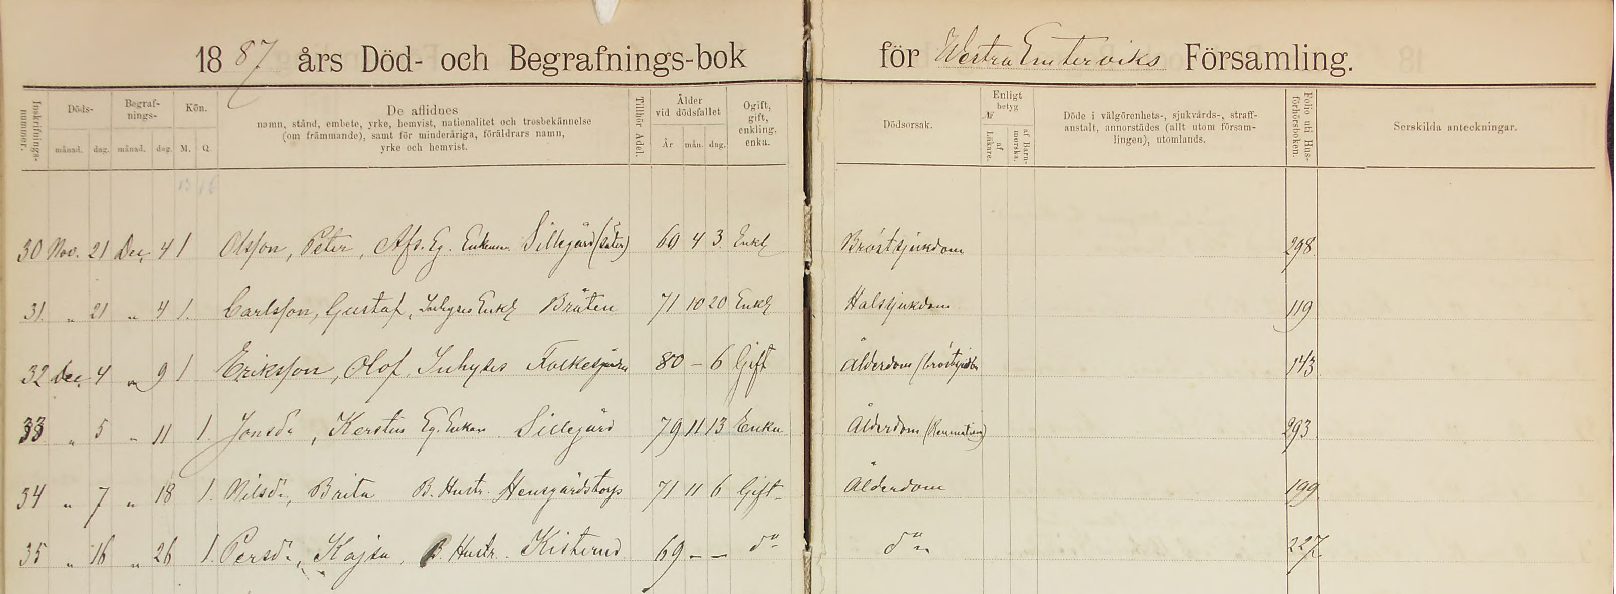 1887 års Död- och Begrafnings-bok för Westra Emterviks Församling.
Inskrifnings-nummer. Döds- månad. dag. Begraf-nings- månad. dag. Kön. M. Q.
De aflidnes
namn, stånd, embete, yrke, hemvist, nationalitet och trosbekännelse
(om främmande), samt för minderåriga, föräldrars namn,
yrke och hemvist.
Tillhör Adel. Ålder vid dödsfallet År mån. dag. Ogift, gift, enkling, enka.
Dödsorsak. Enligt betyg af Läkare. af Barn-morska.
Döde i välgörenhets-, sjukvårds-, straff-
anstalt, annorstädes (allt utom försam-
lingen), utomlands.
Folio uti Hus-förhörsboken. Serskilda anteckningar.
13 16
30 Nov. 21 Dec. 4 1 Olsson, Peter, Afs. Eg. Enkem. Sillegård (Säter) 60 4 3 Enkl Bröstsjukdom 298
31 " 21 " 4 1. Carlsson, Gustaf, Inhyses Enkl Bråten 71 10 20 Enkl Halssjukdom 119
32 Dec. 4 " 9 1 Eriksson, Olof, Inhyses 80 - 6 Gift Ålderdom 143
33 " 5 " 11 1. Jonsdr, Kerstin Eg. Enkan Sillegård 79 11 13 Enka Ålderdom 293
34 " 7 " 18 1. Nilsdr, Brita B. Hustr. Hensgårdstorp 71 11 6 Gift Ålderdom 199
35 " 16 " 26 1. Persdr, Kajsa, B. Hustr. Kisterud 69 - - do do 227